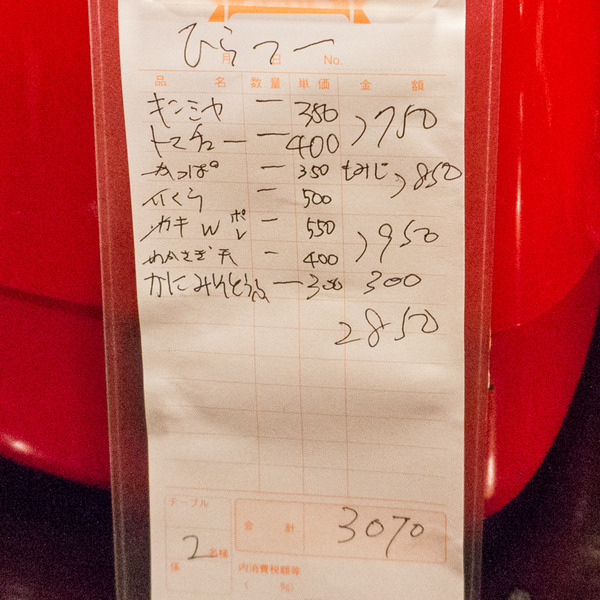 ひらつー
月 日 No.
品 名 数量 単価 金 額
キンミヤ 一 350
トマチュー 一 400 > 750
かっぱ 一 350 もみじ
いくら 一 500 > 850
カキW ポレ 一 550
わかさぎ天 一 400 > 950
かにみそとうふ 一 300 300
2850
テーブル
合 計 3070
係 2 名様
内消費税額等
( %)